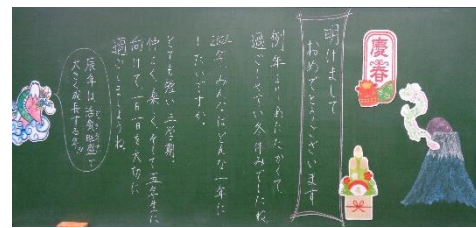 慶春
明けまして
おめでとうございます
例年よりあたたかくて
過ごしやすい冬休みでしたね
みんなはどんな一年に
したいですか。
とても短い三学期、
仲よく、楽しく、そして五年生に
向けて一日一日を大切に
過ごしましょうね
辰年は活気旺盛で
大きく成長する年!!